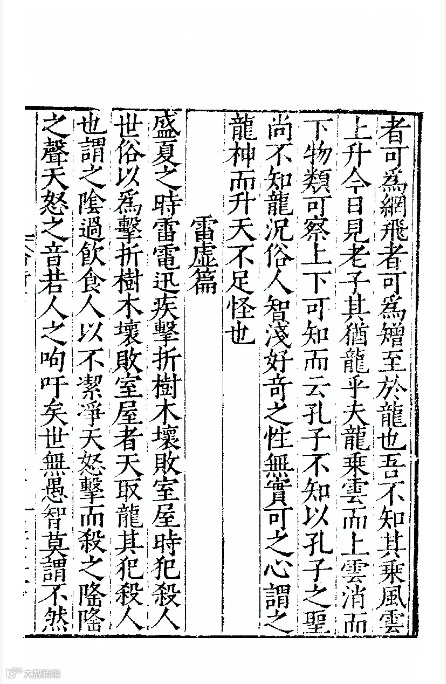 者可爲網飛者可爲矰至於龍也吾不知其乗風雲
上升今日見老子其猶龍乎夫龍乗雲而上雲消而
下物類可察上下可知而云孔子不知以孔子之聖
尚不知龍況俗人智淺好奇之性無實可之心謂之
龍神而升天不足怪也
雷虛篇
盛夏之時雷電迅疾擊折樹木壞敗室屋時犯殺人
世俗以爲擊折樹木壞敗室屋者天取龍其犯殺人
也謂之隂過飲食人以不潔淨天怒擊而殺之隆隆
之聲天怒之音若人之呴吁矣世無愚智莫謂不然